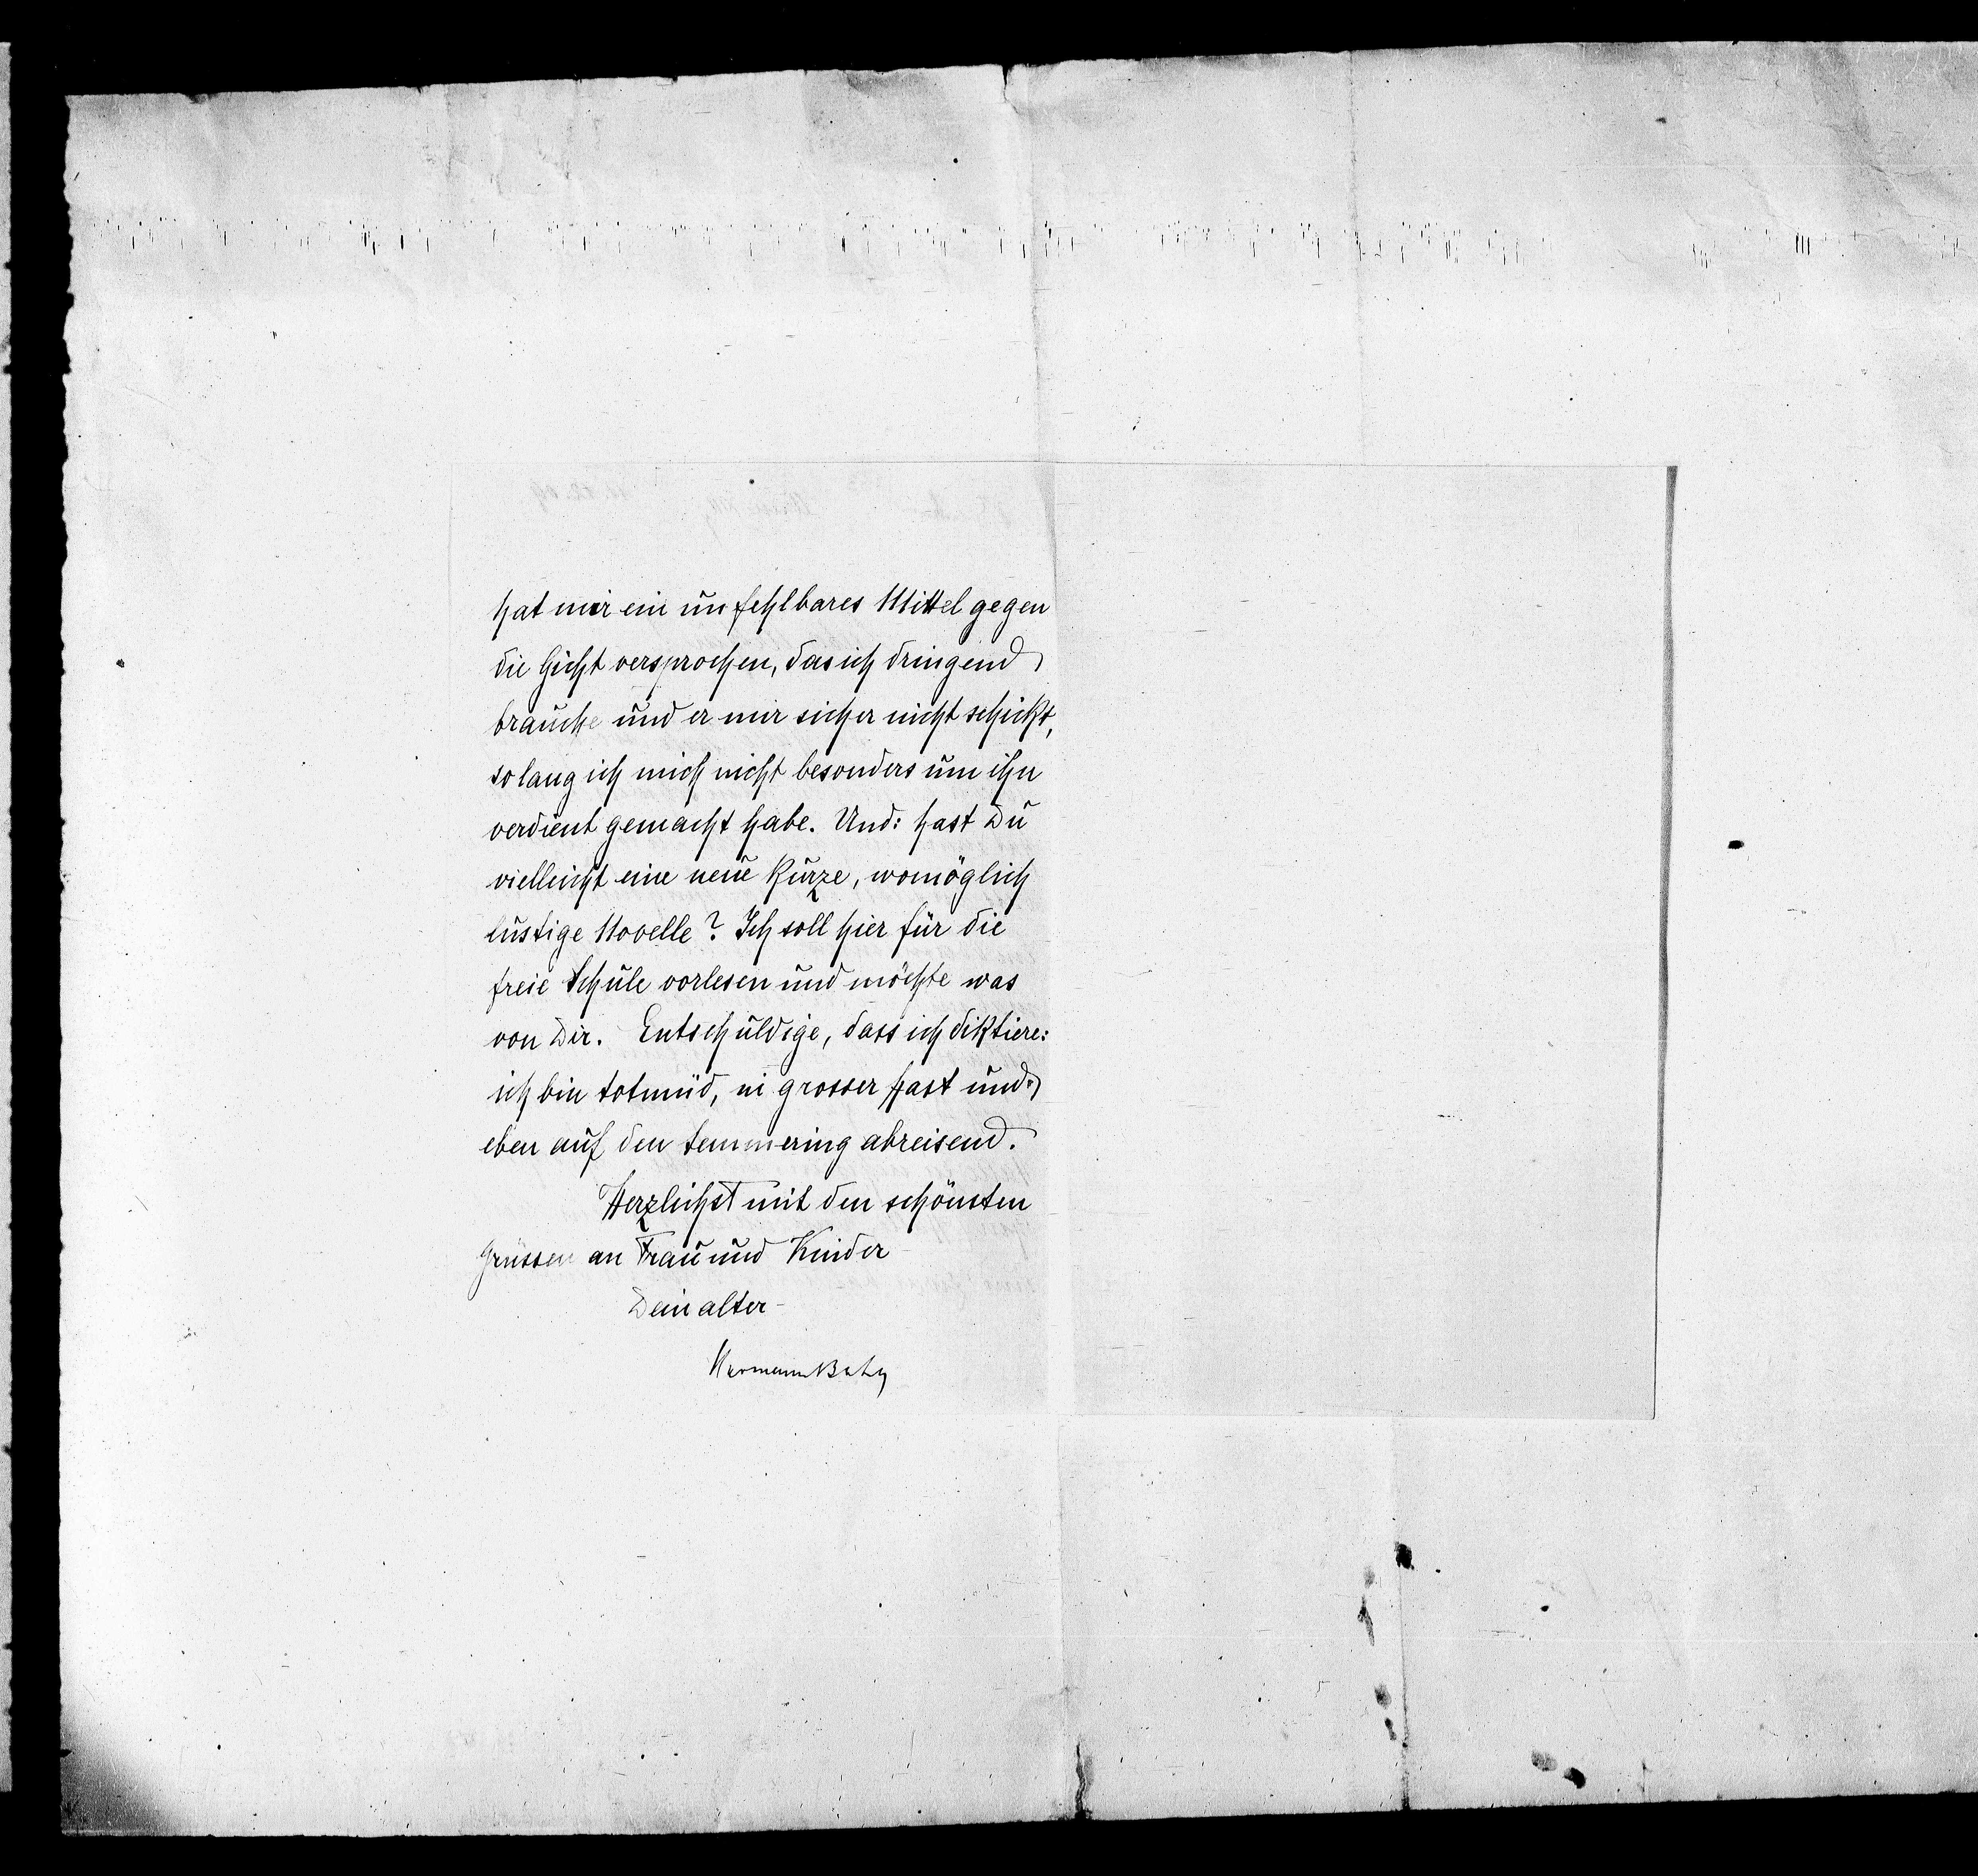 hat mir ein unfehlbares Mittel gegen
die Gicht versprochen, das ich dringend
brauche und er mir sicher nicht schickt,
so lang ich mich nicht besonders um ihn
verdient gemacht habe. Und: hast Du
vielleicht eine neue kurze, womöglich
lustige Novelle? Ich soll hier für die
freie Schule vorlesen und möchte was
von Dir. Entschuldige, dass ich diktiere:
ich bin totmüd, in grosser Hast und
eben auf den Semmering abreisend.
Herzlichst mit den schönsten
Grüssen an Frau und Kinder
Dein alter
Hermann Bahr